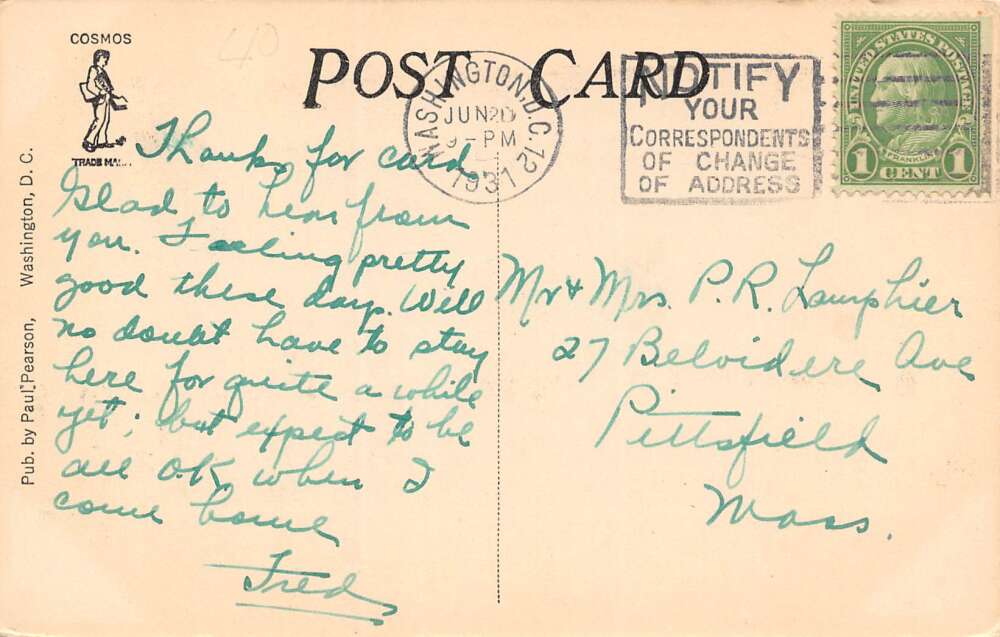 COSMOS
TRADE MARK
Pub. by Paul Pearson, Washington, D. C.
POST CARD
WASHINGTON, D.C. 12
JUN 20
9 - PM
1931
NOTIFY
YOUR
CORRESPONDENTS
OF CHANGE
OF ADDRESS
UNITED STATES POSTAGE
FRANKLIN
1 CENT 1
Thanks for card.
Glad to hear from
you. Feeling pretty
good these days. Will
no doubt have to stay
here for quite a while
yet; but expect to be
all O.K. when I
come home
Fred
Mr & Mrs. P. R. Lamphier
27 Belvidere Ave
Pittsfield
Mass.